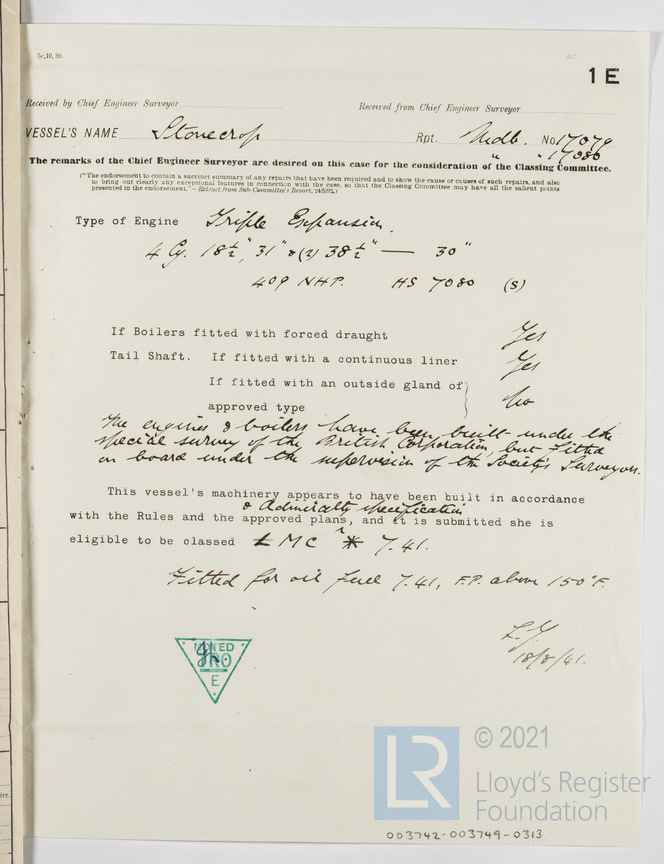 5c,10, 39.
1 E
Received by Chief Engineer Surveyor
Received from Chief Engineer Surveyor
VESSEL'S NAME Stonecrop Rpt. Mdb. No 17079
" " 17080
The remarks of the Chief Engineer Surveyor are desired on this case for the consideration of the Classing Committee.
("The endorsement to contain a succinct summary of any repairs that have been required and to show the cause or causes of such repairs, and also
to bring out clearly any exceptional features in connection with the case, so that the Classing Committee may have all the salient points
presented in the endorsement."—Extract from Sub-Committee's Report.
Type of Engine Triple Expansion.
4 Cy. 18½", 31" & (2) 38½" — 30"
409 NHP. HS 7080 (S)
If Boilers fitted with forced draught Yes
Tail Shaft. If fitted with a continuous liner Yes
If fitted with an outside gland of
approved type No
The engines & boilers have been built under the
special survey of the British Corporation, but fitted
on board under the supervision of the Society's Surveyors.
This vessel's machinery appears to have been built in accordance
& Admiralty specification
with the Rules and the approved plans, and it is submitted she is
eligible to be classed LMC * 7.41.
Fitted for oil fuel 7.41, F.P. above 150°F.
18/8/41.
NOTED
E
LR
© 2021
Lloyd's Register
Foundation
003742-003749-0313